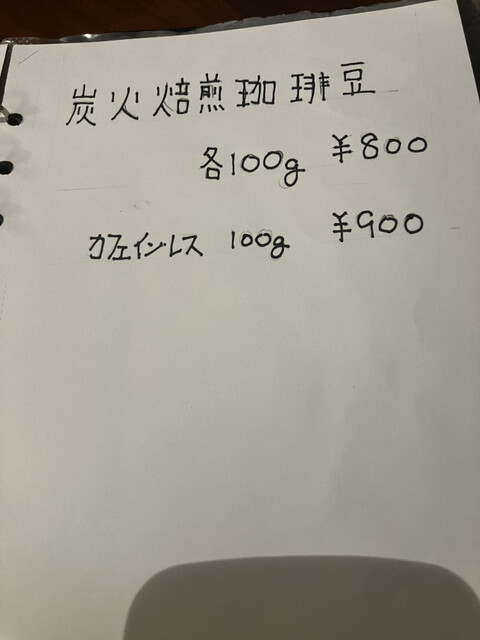 炭火焙煎珈琲豆
各100g ¥800
カフェインレス 100g ¥900